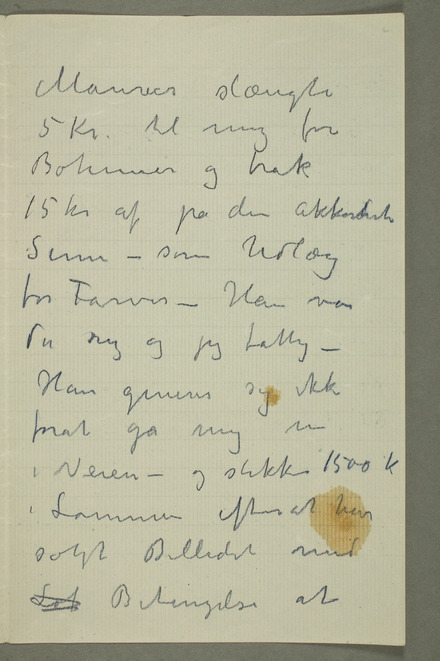 Maurer slængte
5 Kr. til mig for
Bohemer og trak
15 kr af på den akkorderte
Sum – som Udlæg
for Farver – Han var
du mig og jeg
Han generer sig ikke
forat gå mig
i Veien – og stikke 1500 k
i Lommen efterat have
solgt Billedet med
Betingelse at